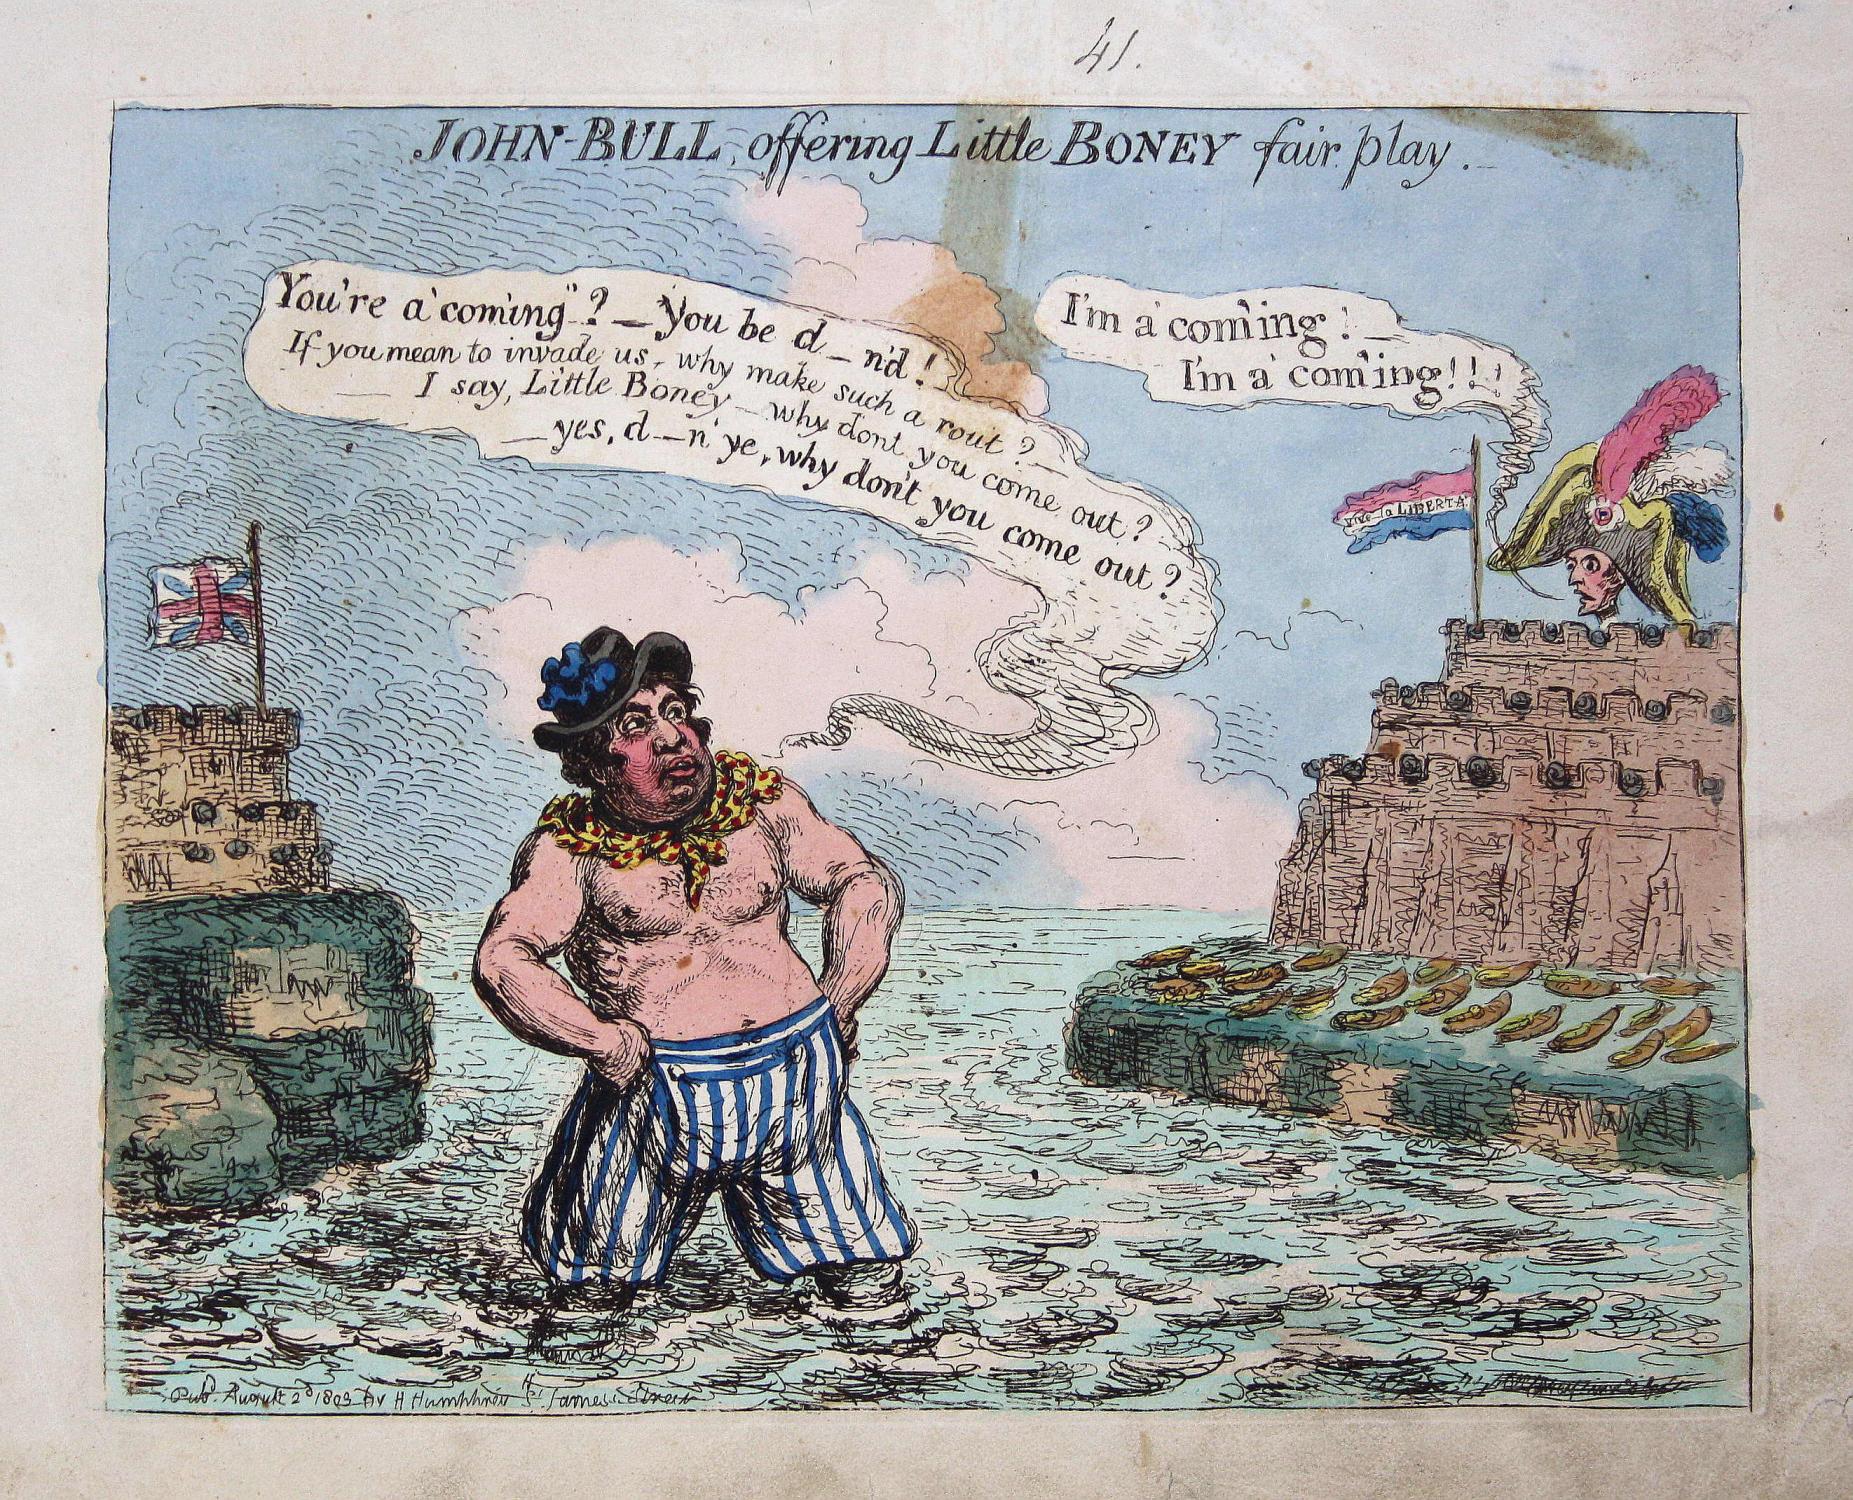 41.
JOHN-BULL, offering Little BONEY fair play.
You're a'coming"? — You be d—n'd!
If you mean to invade us, why make such a rout?
I say, Little Boney — why dont you come out?
— yes, d—n ye, why don't you come out?
I'm a'coming! —
I'm a'coming!!!
Vive la LIBERTA
Pubd August 2d 1803 by H Humphrey St James's Street